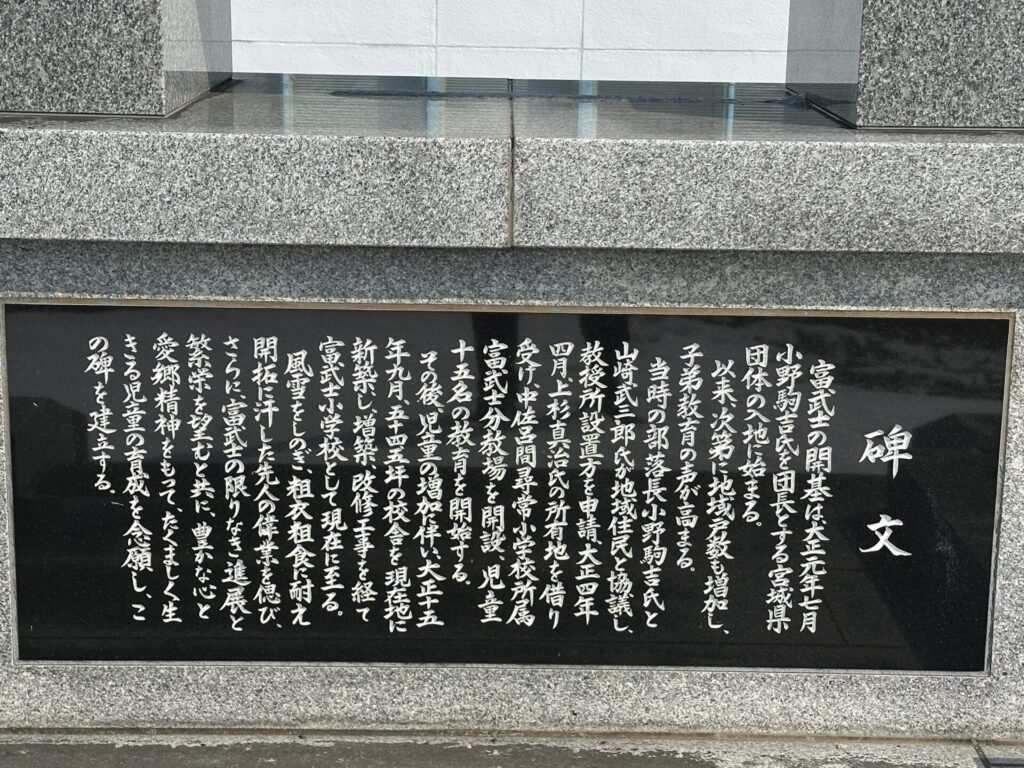 碑文
富武士の開基は、大正元年七月
小野駒吉氏を団長とする宮城県
団体の入地に始まる。
以来、次第に地域戸数も増加し、
子弟教育の声が高まる。
当時の部落長小野駒吉氏と
山崎武三郎氏が地域住民と協議し、
教授所設置方を申請、大正四年
四月、上杉真治氏の所有地を借り
受け、中佐呂間尋常小学校所属
富武士分教場を開設、児童
十五名の教育を開始する。
その後、児童の増加に伴い、大正十五
年九月、五十四・五坪の校舎を現在地に
新築し、増築、改修工事を経て
富武士小学校として現在に至る。
風雪をしのぎ、粗衣粗食に耐え
開拓に汗した先人の偉業を偲び、
さらに、富武士の限りなき進展と
繁栄を望むと共に、豊かな心と
愛郷精神をもって、たくましく生
きる児童の育成を念願し、こ
の碑を建立する。